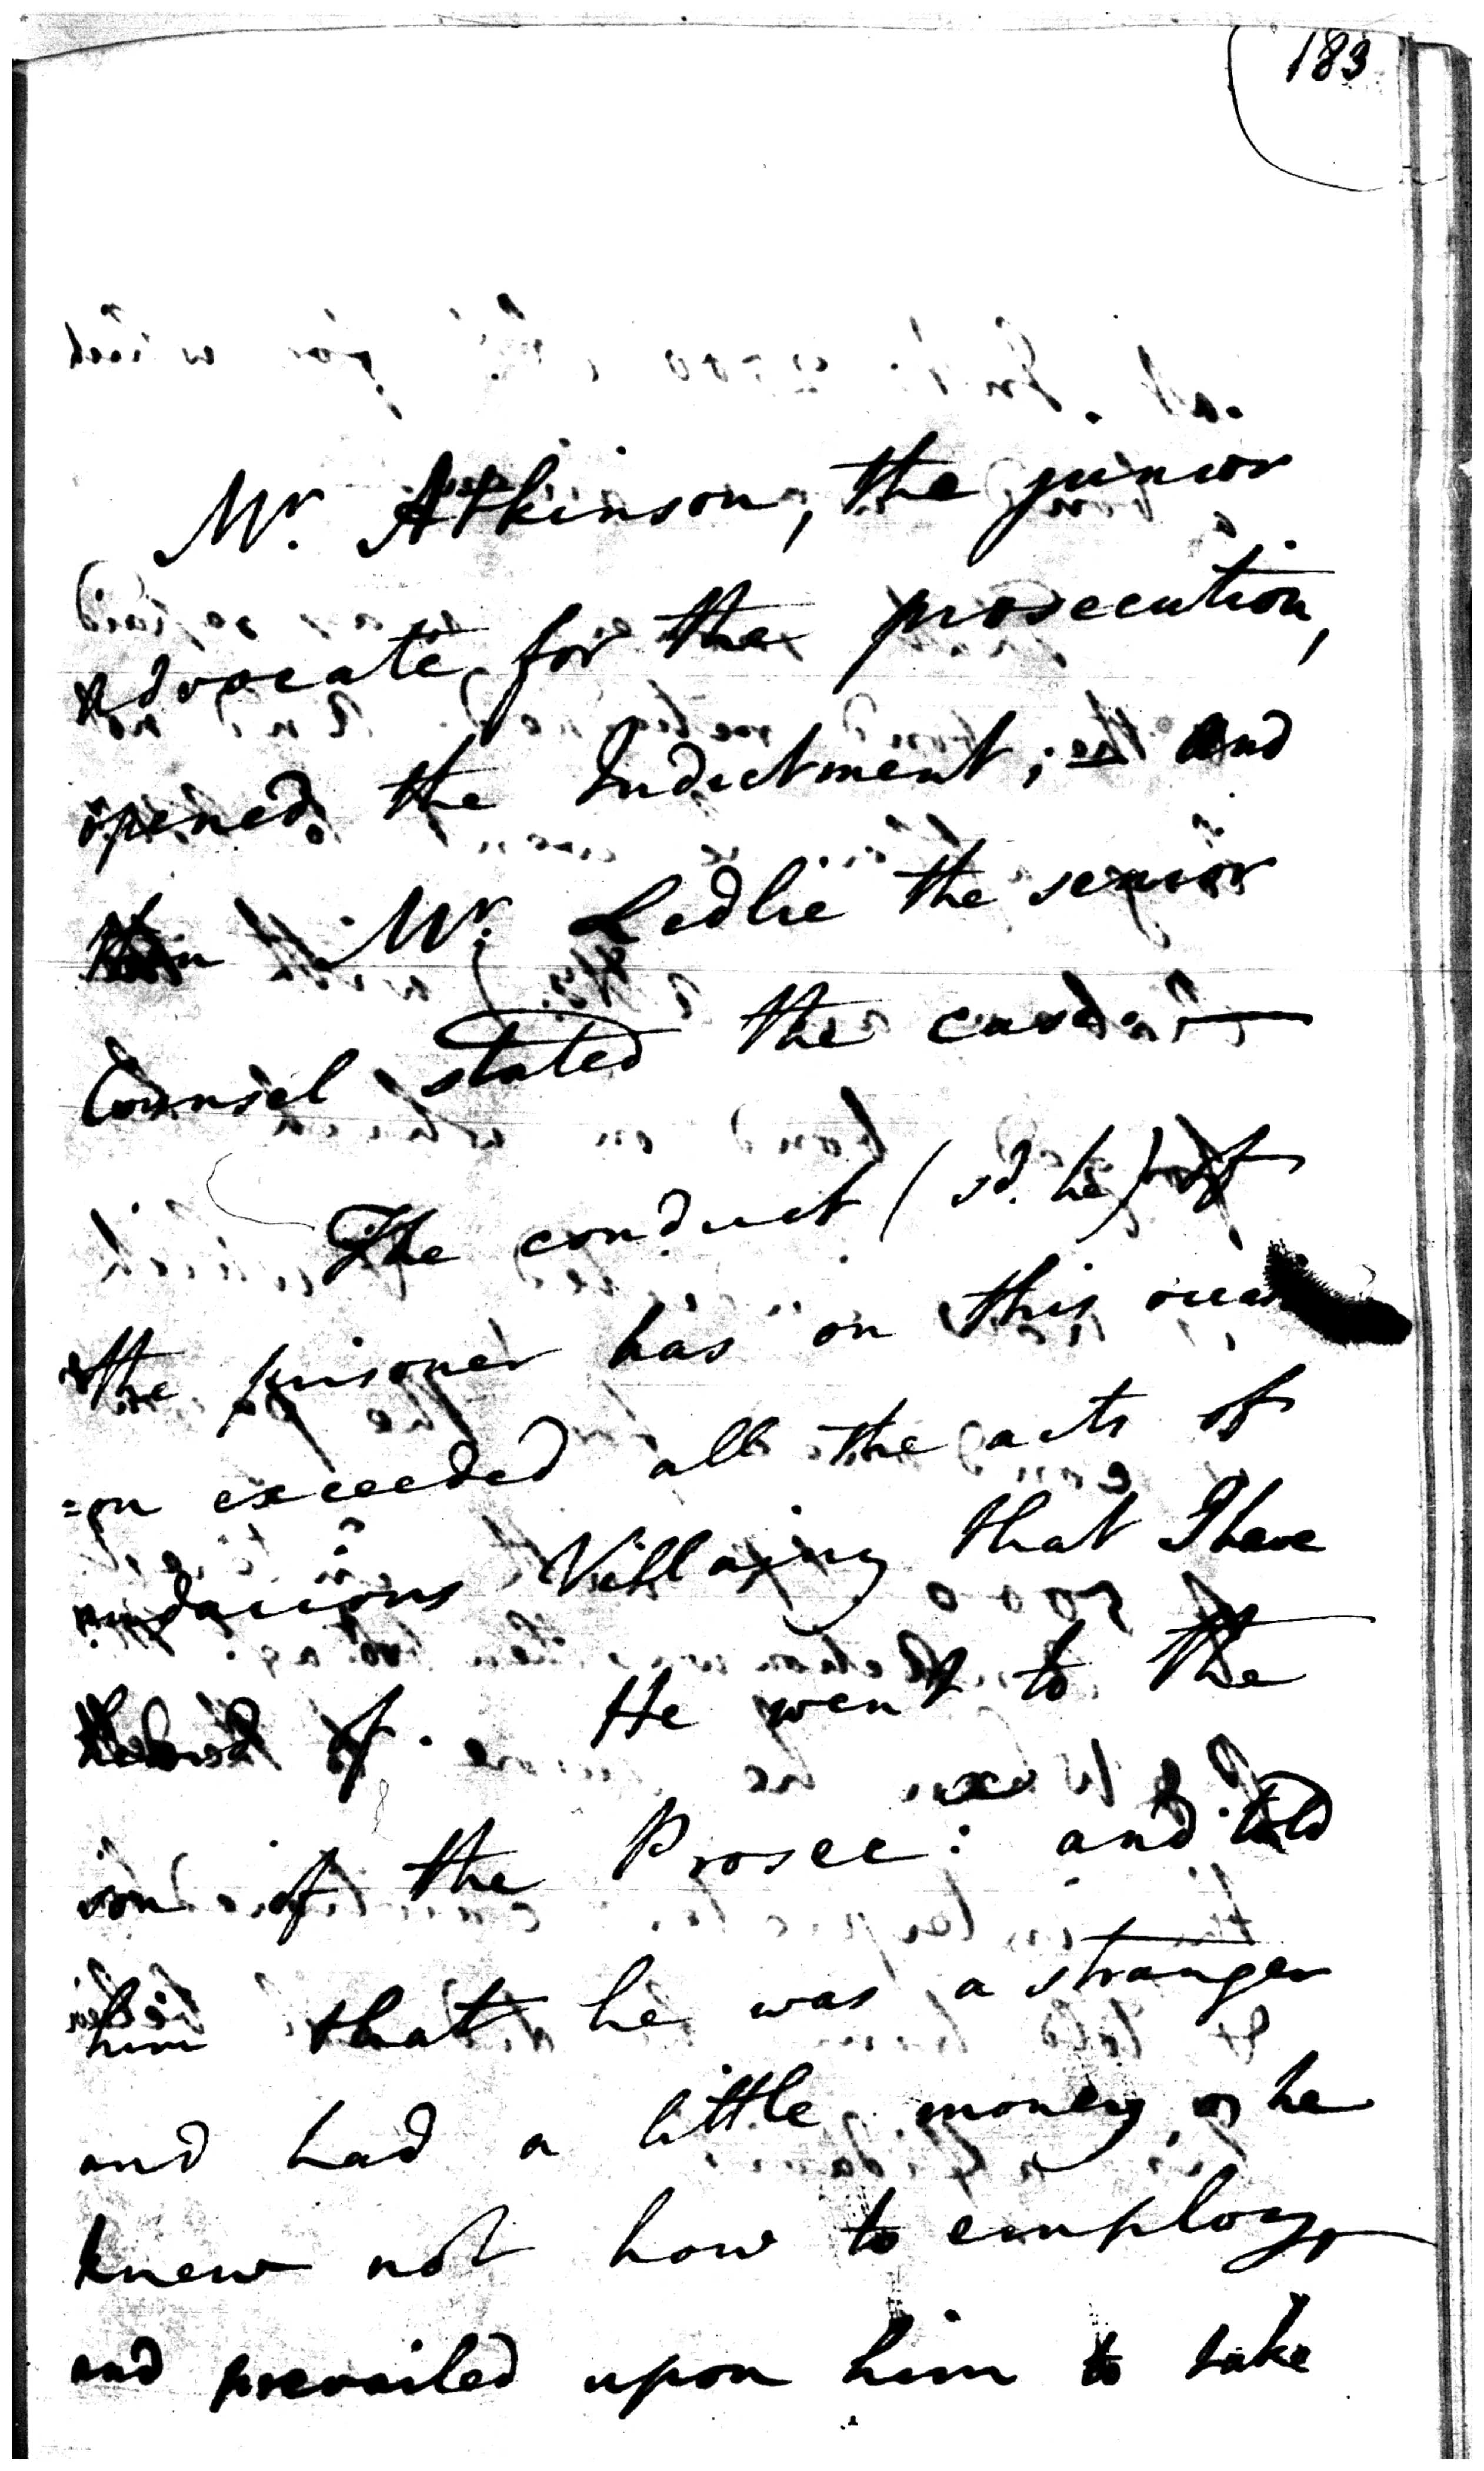 183
Mr. Atkinson, the junior
advocate for the prosecution,
opened the Indictment; and
then Mr. Ledlie the senior
Counsel stated the case. —
The conduct (sd. he) of
the prisoner has on this occa
=on exceeded all the acts of
audacious Villainy that I have
heard of. He went to the
son of the Prosec: and told
him that he was a stranger
and had a little money, he
knew not how to employ,
and prevailed upon him to take